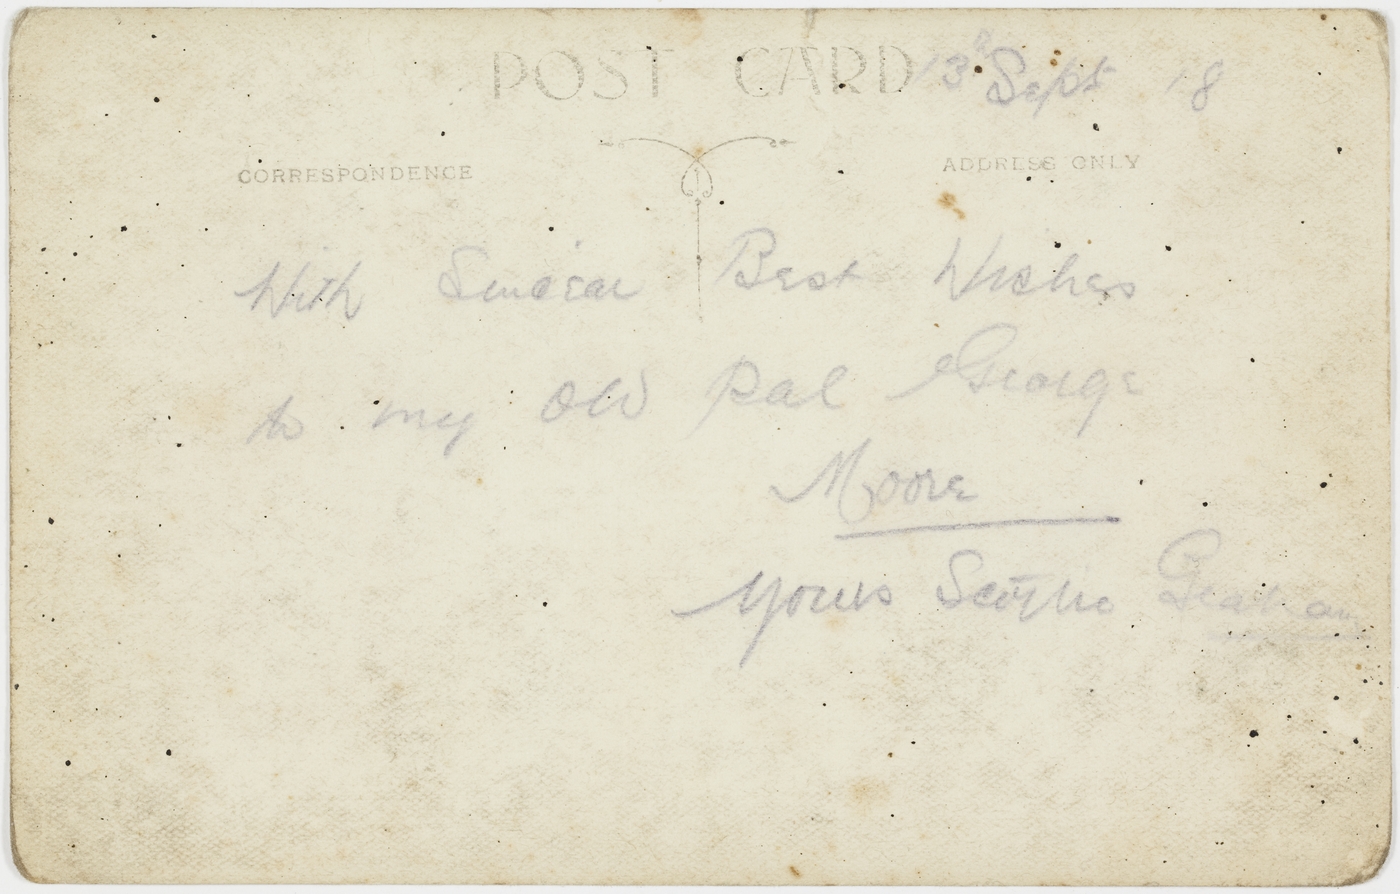 POST CARD 13th Sept 18
CORRESPONDENCE ADDRESS ONLY
With Sincear Best Wishes
to my Old Pal George
Moore
Yours Scotty Graham